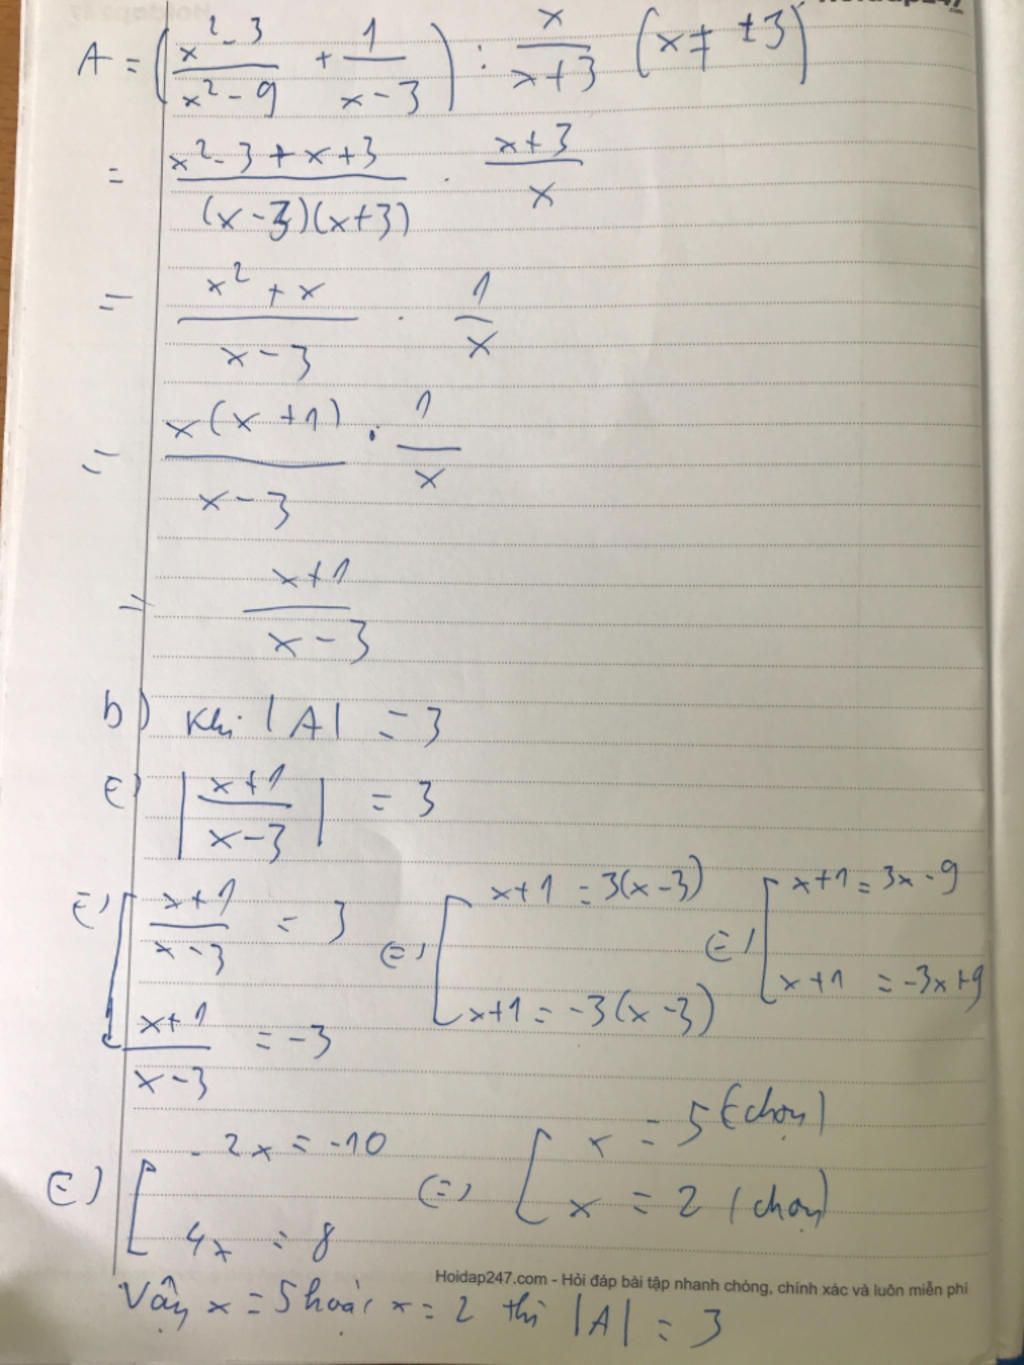 A = ( (x² - 3)/(x² - 9) + 1/(x - 3) ) : x/(x+3) (x ≠ ±3)
= (x² - 3 + x + 3)/((x - 3)(x+3)) . (x+3)/x
= (x² + x)/(x - 3) . 1/x
= x(x + 1)/(x - 3) . 1/x
= (x+1)/(x - 3)
b) Khi |A| = 3
(=) |(x+1)/(x - 3)| = 3
(=) [ (x+1)/(x - 3) = 3 (=) [ x+1 = 3(x - 3) (=) [ x+1 = 3x - 9
(x+1)/(x - 3) = -3 x+1 = -3(x - 3) x+1 = -3x+9
(=) [ -2x = -10 (=) [ x = 5 (chọn)
4x = 8 x = 2 (chọn)
Hoidap247.com - Hỏi đáp bài tập nhanh chóng, chính xác và luôn miễn phí
Vậy x = 5 hoặc x = 2 thì |A| = 3